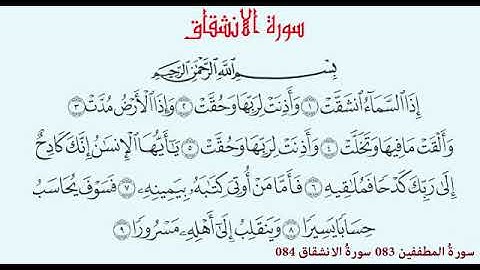 سورة الانشقاق
بِسْمِ اللَّهِ الرَّحْمَٰنِ الرَّحِيمِ
إِذَا السَّمَاءُ انشَقَّتْ ١ وَأَذِنَتْ لِرَبِّهَا وَحُقَّتْ ٢ وَإِذَا الْأَرْضُ مُدَّتْ ٣
وَأَلْقَتْ مَا فِيهَا وَتَخَلَّتْ ٤ وَأَذِنَتْ لِرَبِّهَا وَحُقَّتْ ٥ يَٰأَيُّهَا الْإِنسَٰنُ إِنَّكَ كَادِحٌ
إِلَىٰ رَبِّكَ كَدْحًا فَمُلَٰقِيهِ ٦ فَأَمَّا مَنْ أُوتِيَ كِتَٰبَهُ بِيَمِينِهِ ٧ فَسَوْفَ يُحَاسَبُ
حِسَابًا يَسِيرًا ٨ وَيَنقَلِبُ إِلَىٰ أَهْلِهِ مَسْرُورًا ٩
سورةُ المطففين 083 سورةُ الانشقاق 084